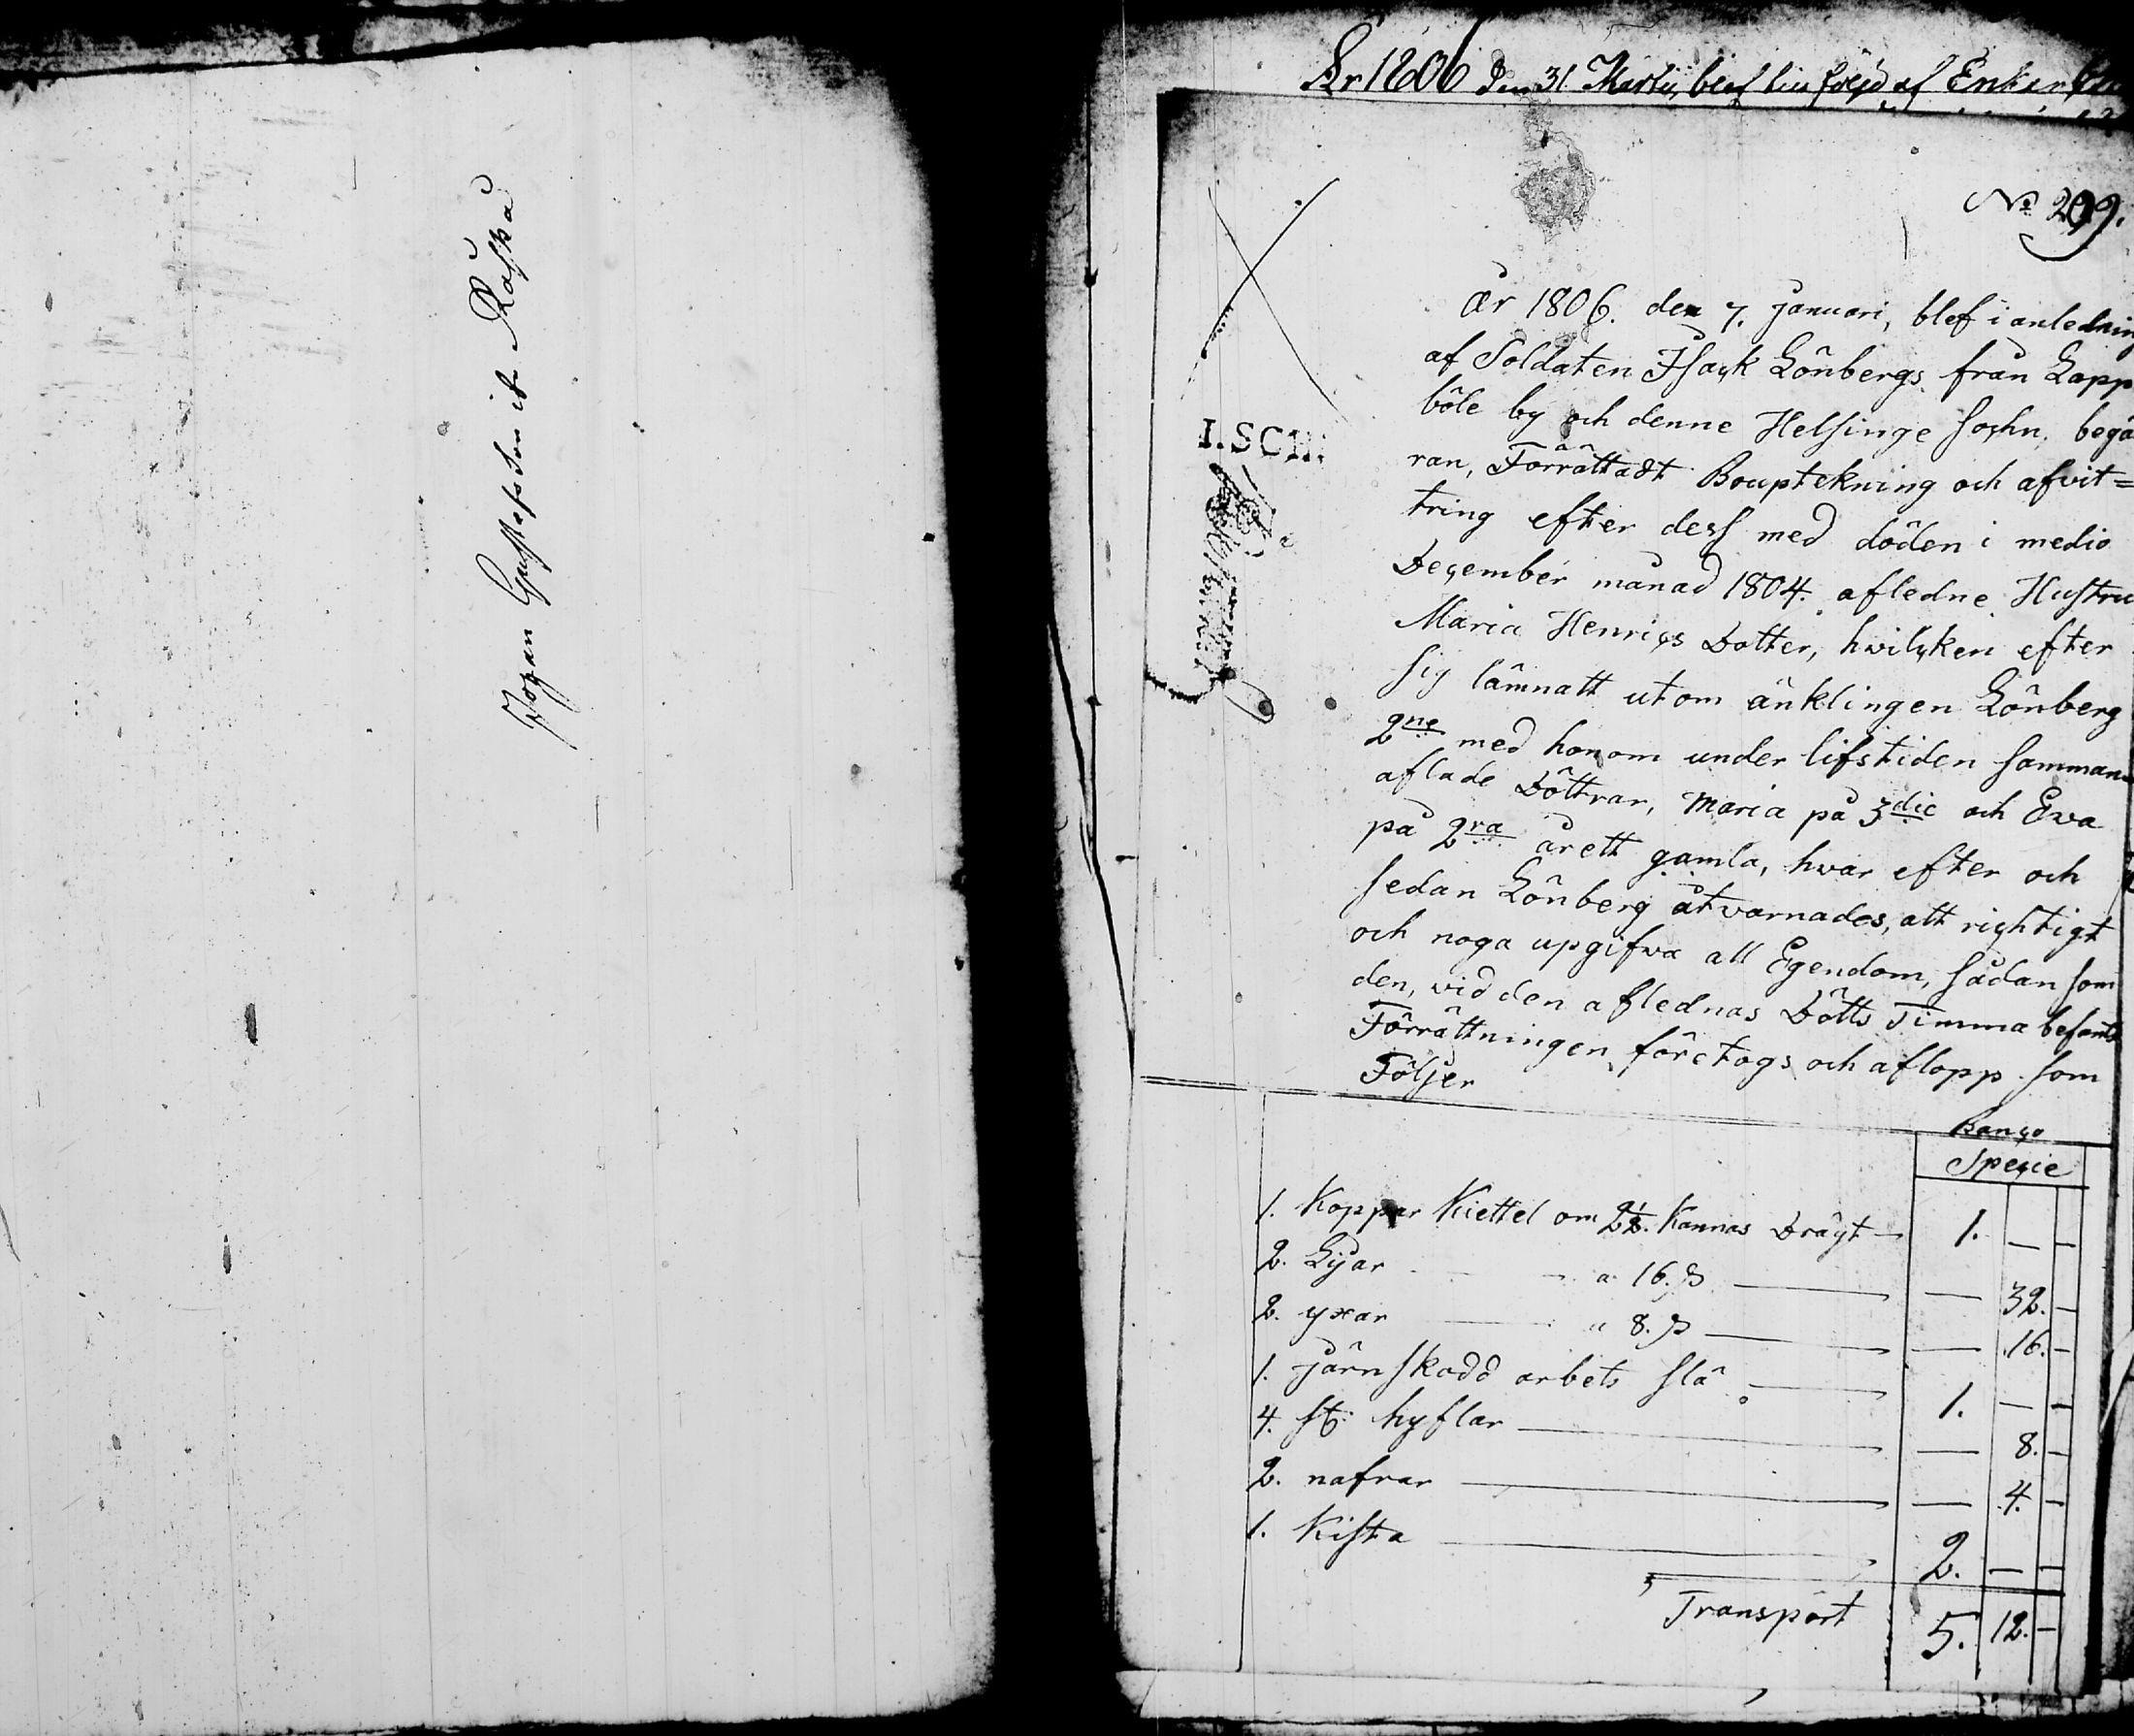 Johan Gustafsson it Raska
År 1806 den 31 Martii, blef lius ſolejd af Enkan
No 299.
År 1806. den 7. Januari, blef i anledning
af Soldaten Iſack Lönbergs från Lapp
böle by och denne Helſinge ſochn, begä
ran, Förrättadt Bouptekning och afvit=
tring efter desſ med döden i medio
December månad 1804. afledne Huſtru
Maria Henrics Dotter, hvilcken efter
ſig lämnatt utom änklingen Lönberg
2ne med honom under lifstiden ſamman
aflade Döttrar, Maria på 3die och Eva
på 2ra årett gamla, hvar efter och
ſedan Lönberg åtvarnades, att richtigt
och noga upgifva all Egendom, ſådan ſom
den, vid den aflednas Dötts Timma befants
Förrättningen företogs och aflopp ſom
Följer
Banco
Specie
1. Koppar Kiettel om 2½. Kannas Drägt — 1. — —
2. Lijar a 16. ß — — 32. —
2. yxar a 8. ß — — 16. —
1. järnſkodd arbets ſlä — 1. — —
4. ſt: hyflar — — 8. —
2. nafrar — — 4. —
1. Kiſta — 2. — —
Transport 5. 12. —
I. SCH: